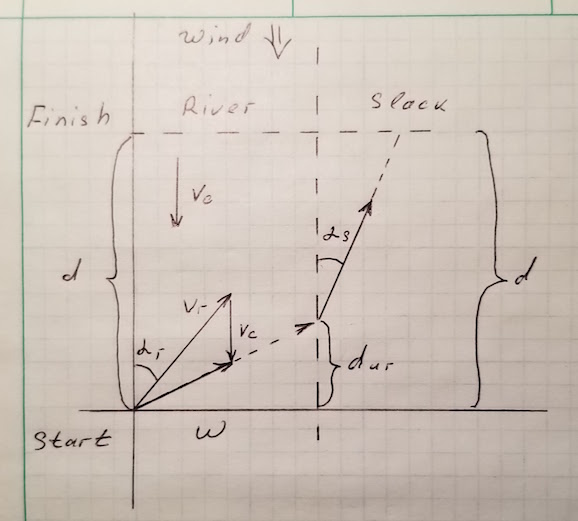 Wind
Finish River Slack
Vc
αs
d d
Vr Vc
αr
dur
Start W